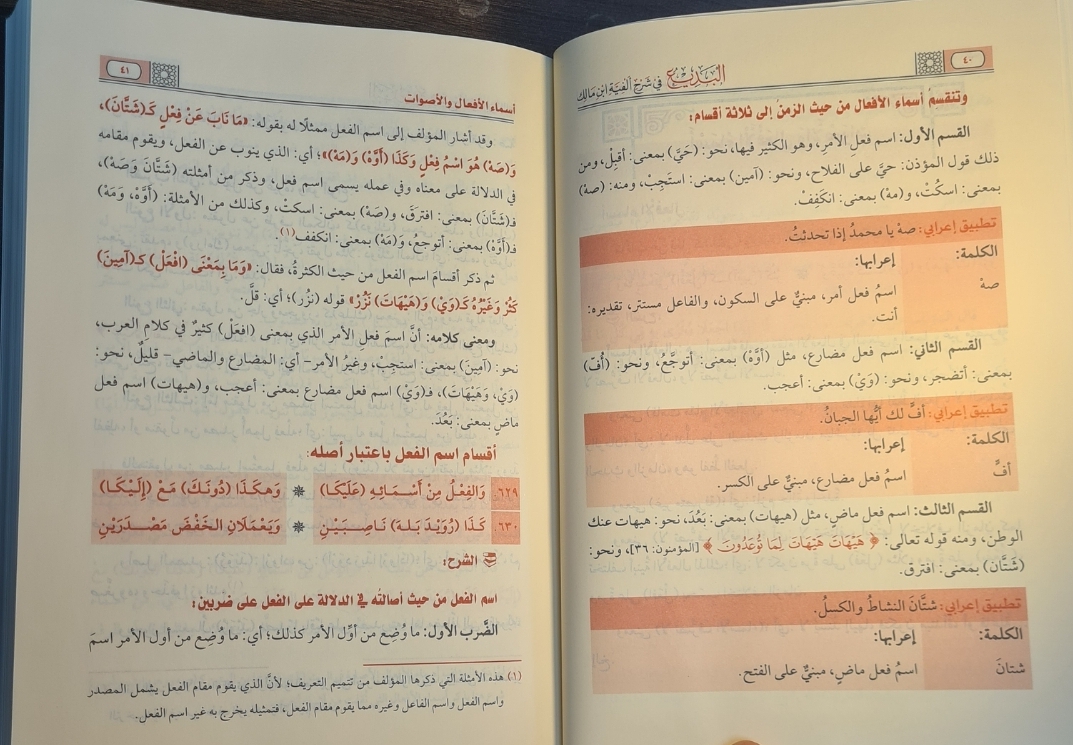 ٤٠
البديع في شرح ألفية ابن مالك
وتنقسمُ أسماء الأفعال من حيث الزمنُ إلى ثلاثة أقسام:
القسم الأول: اسم فعل الأمرِ، وهو الكثير فيها، نحو: (حَيَّ) بمعنى: أقبِلْ، ومن
ذلك قول المؤذن: حيَّ على الفلاح، ونحو: (آمين) بمعنى: استَجِبْ، ومنه: (صهْ)
بمعنى: اسكُتْ، و(مهْ) بمعنى: انكَفِفْ.
تطبيق إعرابي: صهْ يا محمدُ إذا تحدثتُ.
الكلمة: إعرابها:
صهْ اسمُ فعل أمر، مبنيٌّ على السكون، والفاعل مستتر، تقديره:
أنت.
القسم الثاني: اسم فعل مضارع، مثل (أوَّهْ) بمعنى: أتوجَّعُ، ونحو: (أُفّ)
بمعنى: أتضجر، ونحو: (وَيْ) بمعنى: أعجب.
تطبيق إعرابي: أفَّ لك أيُّها الجبانُ.
الكلمة: إعرابها:
أفِّ اسمُ فعل مضارع، مبنيٌّ على الكسر.
القسم الثالث: اسم فعل ماضٍ، مثل (هيهات) بمعنى: بَعُدَ، نحو: هيهات عنك
الوطن، ومنه قوله تعالى: ﴿ هَيْهَاتَ هَيْهَاتَ لِمَا تُوعَدُونَ ﴾ [المؤمنون: ٣٦]، ونحو:
(شَتَّان) بمعنى: افترق.
تطبيق إعرابي: شتَّانَ النشاطُ والكسلُ.
الكلمة: إعرابها:
شتانَ اسمُ فعل ماضٍ، مبنيٌّ على الفتح.
٤١
أسماء الأفعال والأصوات
وقد أشار المؤلف إلى اسم الفعل ممثلًا له بقوله: «مَا نَابَ عَنْ فِعْلٍ كَـ(شَتَّانَ)،
وَ(صَهْ) هُوَ اسْمُ فِعْلٍ وَكَذَا (أَوَّهْ) وَ(مَهْ)»؛ أي: الذي ينوب عن الفعل، ويقوم مقامه
في الدلالة على معناه وفي عمله يسمى اسم فعل، وذكر من أمثلته (شتَّانَ وَصَهْ)،
فـ(شَتَّان) بمعنى: افترقَ، و(صَهْ) بمعنى: اسكتْ، وكذلك من الأمثلة: (أَوَّهْ، وَمَهْ)
فـ(أوَّهْ) بمعنى: أتوجعُ، وَ(مَهْ) بمعنى: انكفف(١).
ثم ذكر أقسامَ اسم الفعل من حيث الكثرةُ، فقال: «وَمَا بِمَعْنَى (افْعَلْ) كَـ(آمِينَ)
كَثُرْ وَغَيْرُهُ كَـ(وَيْ) وَ(هَيْهَاتَ) نَزُرْ» قوله (نزُر)؛ أي: قلَّ.
ومعنى كلامه: أنَّ اسمَ فعل الأمر الذي بمعنى (افعَلْ) كثيرٌ في كلام العرب،
نحو: (آمِينَ) بمعنى: استجِبْ، وغيرُ الأمر- أي: المضارع والماضي- قليلٌ، نحو:
(وَيْ، وَهَيْهَاتَ)، فـ(وَيْ) اسم فعل مضارع بمعنى: أعجب، و(هيهات) اسم فعل
ماضٍ بمعنى: بَعُدَ.
أقسام اسم الفعل باعتبار أصله:
٦٢٩. وَالفِعْلُ مِنْ أَسْـمَـائِـهِ (عَلَيْكَا) ❋ وَهـكَـذَا (دُونَكَ) مَـعْ (إِلَيْكَـا)
٦٣٠. كَـذَا (رُوَيْـدَ بَـلهَ) نَـاصِـبَـيْـنِ ❋ وَيَعْمَلَانِ الـخَفْضَ مَصْـدَرَيْنِ
الشرح:
اسم الفعل من حيث أصالتُه في الدلالة على الفعل على ضربين:
الضَّرب الأول: ما وُضِع من أوَّل الأمر كذلك؛ أي: ما وُضِع من أول الأمر اسمَ
(١) هذه الأمثلة التي ذكرها المؤلف من تتميم التعريف؛ لأنَّ الذي يقوم مقام الفعل يشمل المصدر
واسم الفعل واسم الفاعل وغيره مما يقوم مقام الفعل، فتمثيله يخرج به غير اسم الفعل.